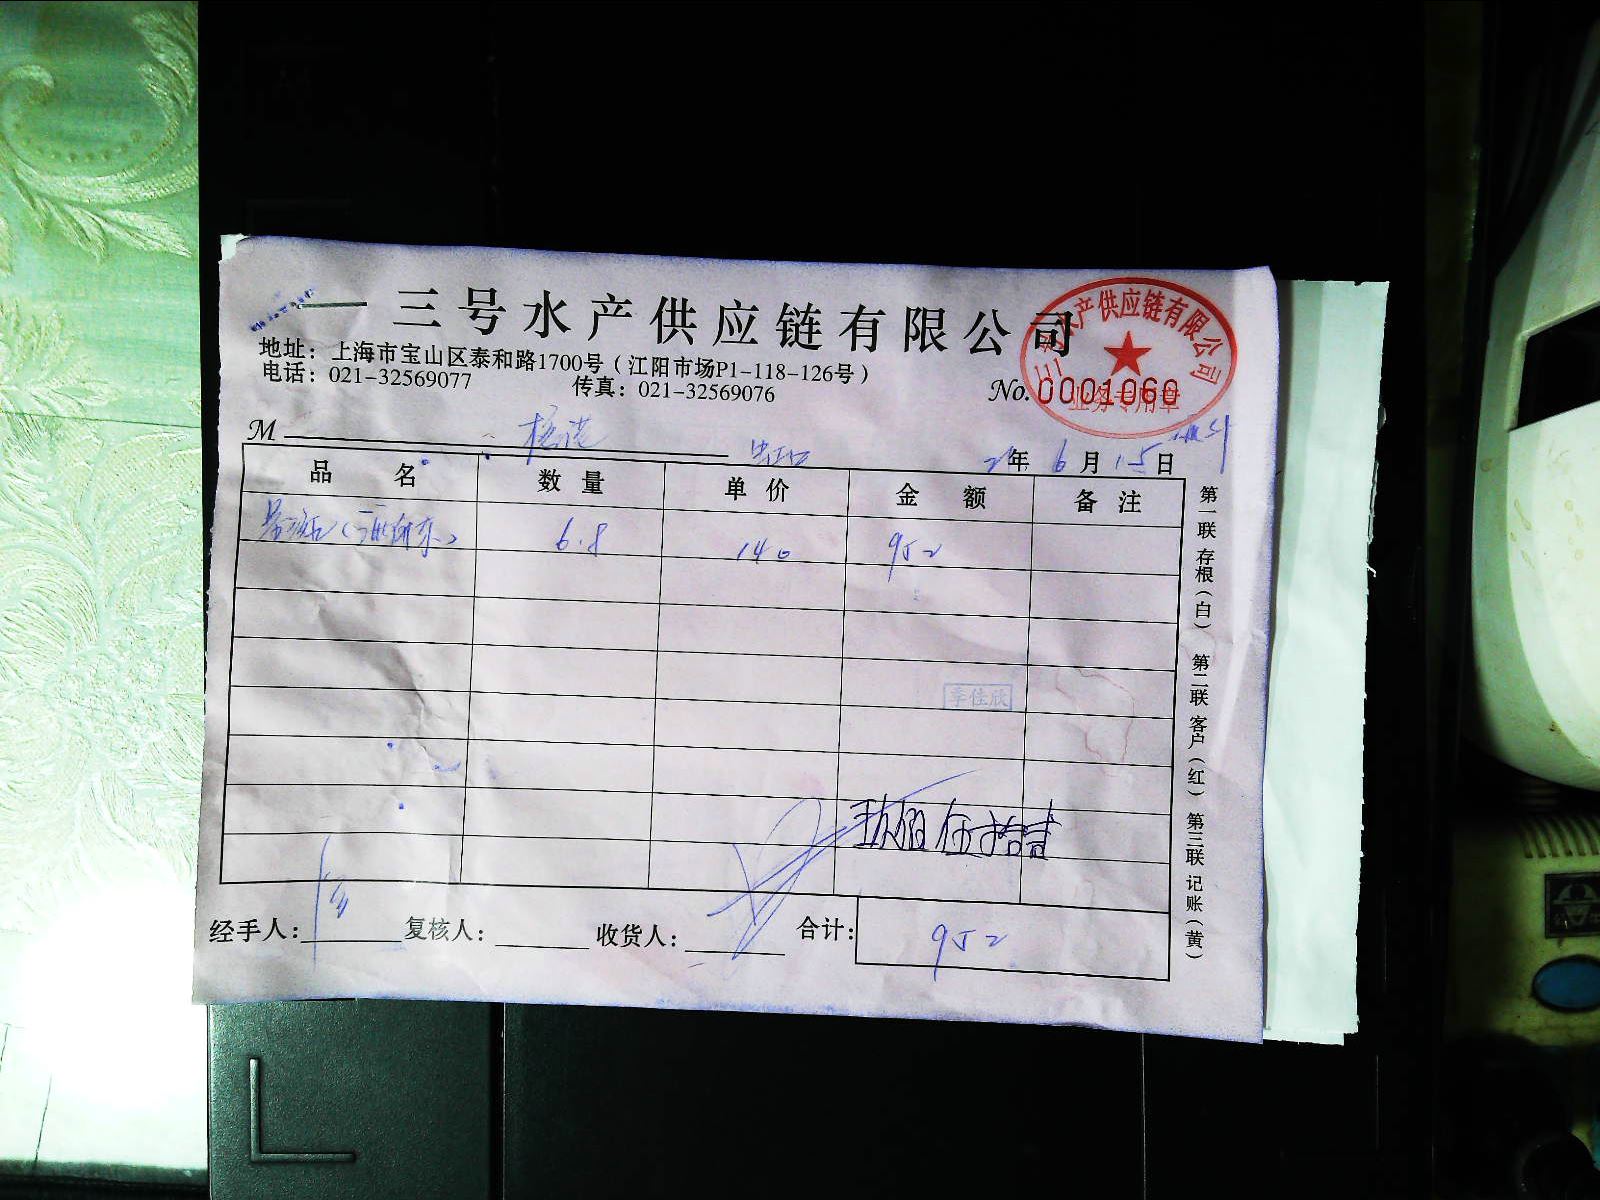 三号水产供应链有限公司
地址：上海市宝山区泰和路1700号（江阳市场P1-118-126号）
电话：021-32569077 传真：021-32569076
No. 0001060
产供应链有限公司
业务专用章
M 年 6 月 15 日
品 名 数 量 单 价 金 额 备 注
6.8 140 952
季佳欣
经手人： 复核人： 收货人： 合计： 952
第一联 存根（白） 第二联 客户（红） 第三联 记账（黄）